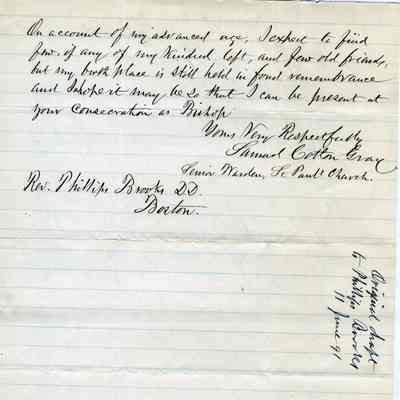 On account of my advanced age, I expect to find
few, if any of my kindred left, and few old friends,
but my birth place is still held in fond remembrance
and I hope it may be so that I can be present at
your Consecration as Bishop
Yours Very Respectfully
Samuel Cotton Gray
Senior Warden, St Pauls Church.
Rev. Phillips Brooks D.D.
Boston.
Original draft
to Phillips Brooks
11 June 91